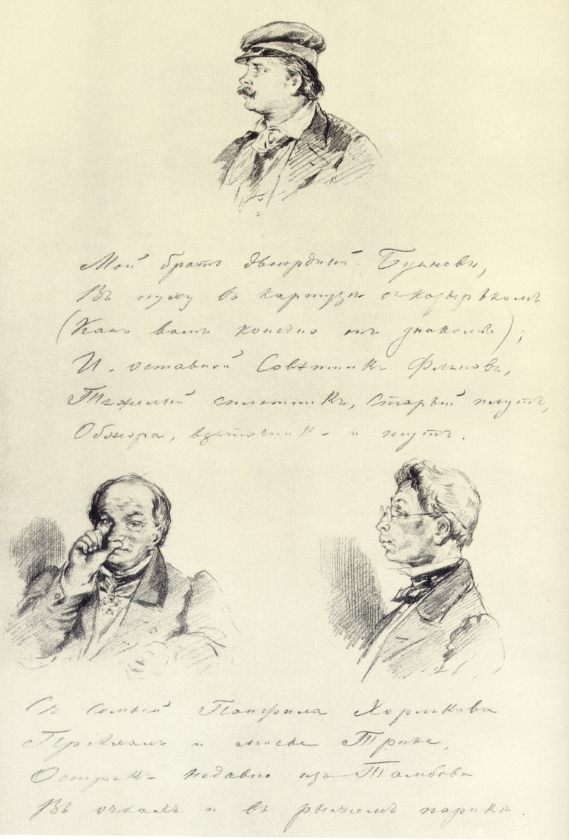 Мой братъ двоюродный Буяновъ,
Въ пуху въ картузѣ съ козырькомъ
(Какъ вамъ конечно онъ знакомъ);
И отставной Совѣтникъ Фляновъ,
Тяжелый сплетникъ, старый плутъ,
Обжора, взяточникъ и шутъ.
Съ семьей Панфила Харликова
Пріѣхалъ и мосье Трике,
Острякъ недавно изъ Тамбова
Въ очкахъ и въ рыжемъ парикѣ.